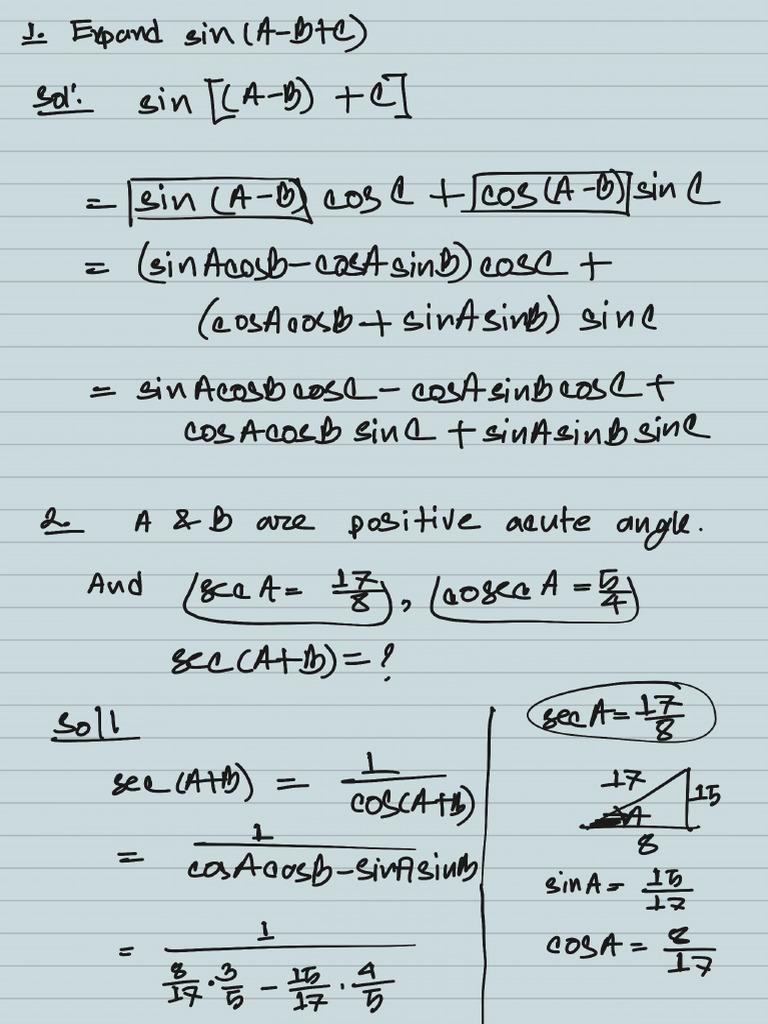 1. Expand sin(A-B+C)
Sol'. sin [(A-B) + C]
= sin (A-B) cos C + cos (A-B) sin C
= (sinAcosB-cosAsinB) cosC +
(cosAcosB + sinAsinB) sinC
= sinAcosBcosC - cosAsinBcosC +
cosAcosB sinC + sinAsinBsinC
2. A & B are positive acute angle.
And (sec A = 17/8), (cosec A = 5/4)
sec(A+B) = ?
Soll
sec(A+B) = 1/cos(A+B)
= 1/cosAcosB-sinAsinB
= 1/8/17 · 3/5 - 15/17 · 4/5
secA = 17/8
17
15
A
8
sinA = 15/17
cosA = 8/17